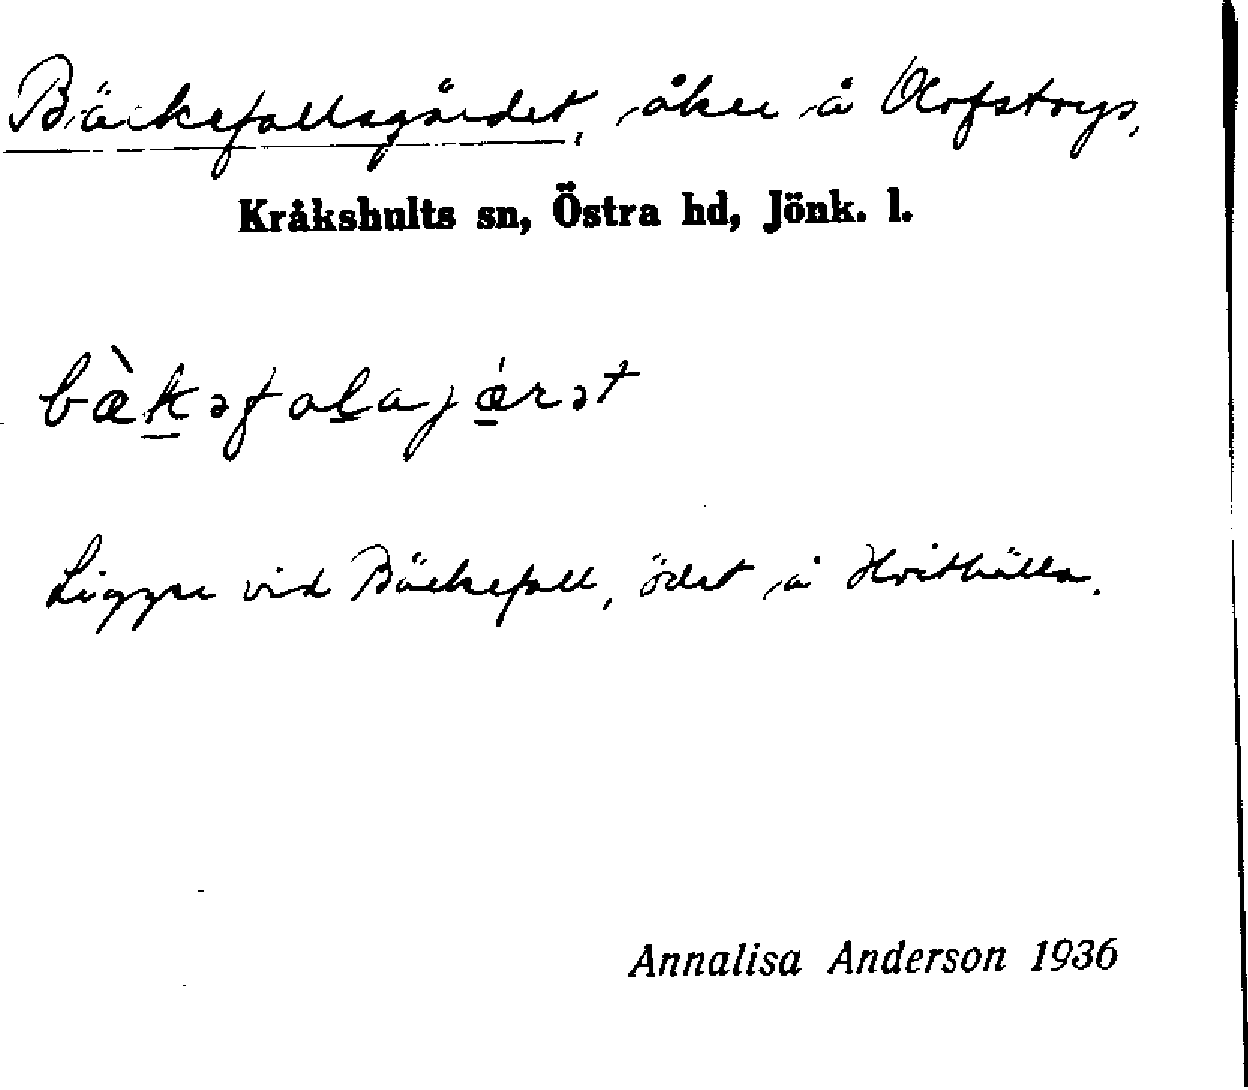 Bäckefallsgärdet, åker å Olofstorps,
Kråkshults sn, Östra hd, Jönk. l.
bæ̀k̲əfal̲ajǽ̲rət
Ligger vid Bäckefall, ödet å Hvithälla.
Annalisa Anderson 1936